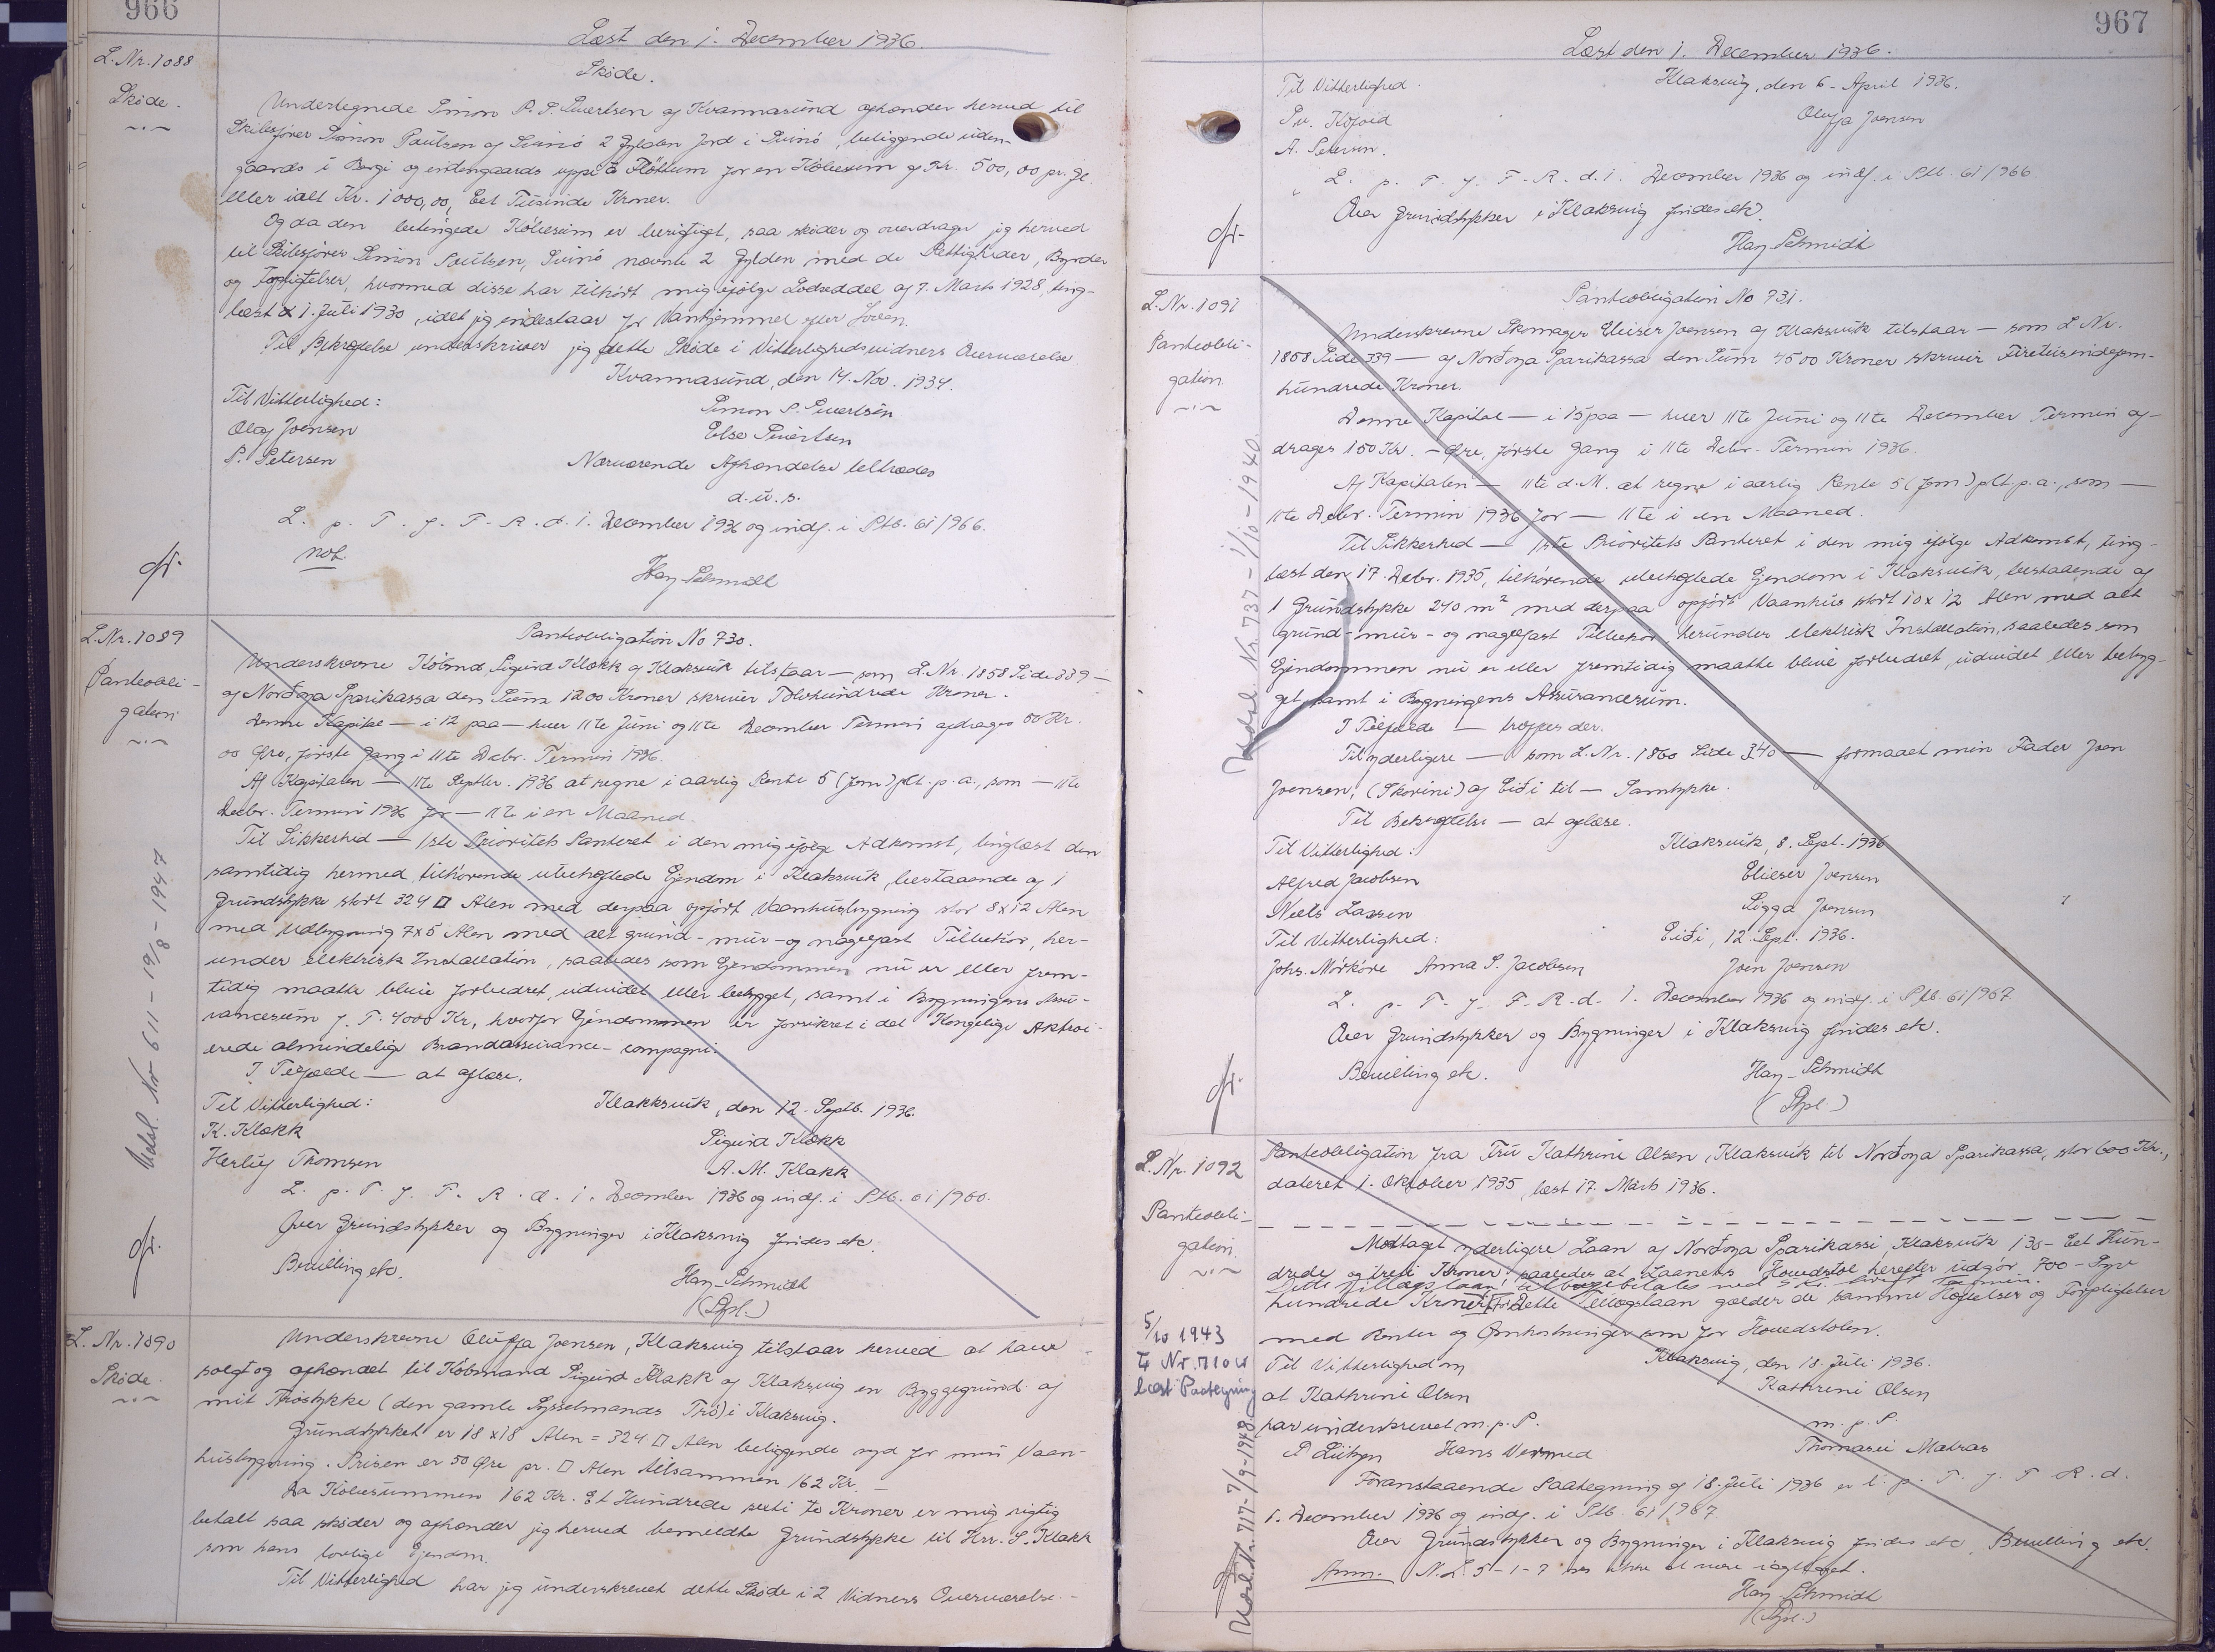 966
Læst den 1. December 1936.
L. Nr. 1088
Skøde.
Skøde.
Undertegnede Simon P. S. Sivertsen af Kvannasund afhænder herved til
Skibsfører Simon Poulsen af Svinø 2 Gylden Jord i Svinø, beliggende uden-
gaards i Borgi og indengaards uppi á Fløttum for en Købesum af Kr. 500,00 pr. Gl.
eller ialt Kr. 1000,00, Eet Tusinde Kroner.
Og da den betingede Købesum er berigtiget, saa skøder og overdrager jeg herved
til Skibsfører Simon Poulsen, Svinø nævnte 2 Gylden med de Rettigheder, Byrder
og Forpligtelser, hvormed disse har tilhørt mig ifølge Lodseddel af 7. Marts 1928, ting-
læst d. 1. Juli 1930, idet jeg indestaar for Vanhjemmel efter Loven.
Til Bekræftelse underskriver jeg dette Skøde i Vitterlighedsvidners Overværelse.
Kvannasund, den 14. Nov. 1934.
Til Vitterlighed:
Simon S. Sivertsen
Olaf Joensen
Else Sivertsen
P. Petersen
Nærværende Afhændelse tiltrædes
d. u. s.
L. p. T. f. F. R. d. 1. December 1936 og indf. i Ptb. 61/966.
not.
Hay-Schmidt
L. Nr. 1089
Panteobli-
gation
Panteobligation No 730.
Underskrevne Købmd. Sigurd Klakk af Klaksvik tilstaar — som L. Nr. 1858 Side 339 —
af Norðoya Sparikassa den Sum 1200 Kroner skriver Tolvhundrede Kroner.
Denne Kapital — i 12 paa — hver 11te Juni og 11te December Termin afdrages 50 Kr.
00 Øre, første Gang i 11te Decbr. Termin 1936.
Af Kapitalen — 11te Septbr. 1936 at regne i aarlig Rente 5 (fem) pCt. p. a., som — 11te
Decbr. Termin 1936 for — 11te i en Maaned.
Til Sikkerhed — 1ste Prioritets Panteret i den mig ifølge Adkomst, tinglæst den
samtidig hermed, tilhørende ubehæftede Ejendom i Klaksvik, bestaaende af 1
Grundstykke stort 324 □ Alen med derpaa opført Vaanhusbygning stor 8x12 Alen
med Udbygning 7x5 Alen med alt grund- mur- og nagelfast Tilbehør, her-
under elektrisk Installation, saaledes som Ejendommen nu er eller frem-
tidig maatte blive forbedret, udvidet eller bebygget, samt i Bygningens Assu-
rancesum f. T. 4000 Kr., hvorfor Ejendommen er forsikret i det Kongelige Aktroi-
erede almindelige Brandassurance-compagni.
I Tilfælde — at aflæse.
Til Vitterlighed:
Klakksvik, den 12. Septb. 1936.
K. Klakk
Sigurd Klakk
Herluf Thomsen
A. M. Klakk
L. p. T. f. F. R. d. 1. December 1936 og indf. i Ptb. 61/966.
Over Grundstykker og Bygninger i Klaksvig findes etc.
Bevilling etc.
Hay-Schmidt
(Dpl.)
Udsl. Nr 611 - 19/8 - 1947
L. Nr. 1090
Skøde.
Underskrevne Oluffa Joensen, Klaksvig tilstaar herved at have
solgt og afhændet til Købmand Sigurd Klakk af Klaksvig en Byggegrund af
mit Trøstykke (den gamle Sysselmands Trø) i Klaksvig.
Grundstykket er 18 x 18 Alen = 324 □ Alen beliggende syd for min Vaan-
husbygning. Prisen er 50 Øre pr. □ Alen tilsammen 162 Kr. —
Da Købesummen 162 Kr. Et Hundrede seksti to Kroner er mig rigtig
betalt saa skøder og afhænder jeg herved bemeldte Grundstykke til Hrr. S. Klakk
som hans lovlige Ejendom.
Til Vitterlighed har jeg underskrevet dette Skøde i 2 Vidners Overværelse. -
967
Læst den 1. December 1936.
Til Vitterlighed.
Klaksvig, den 6. April 1936.
Oluffa Joensen
A. Sivertsen.
L. p. T. f. F. R. d. 1. December 1936 og indf. i Ptb. 61/966
Over Grundstykker i Klaksvig findes etc.
Hay-Schmidt
L. Nr. 1091
Panteobli-
gation.
Panteobligation No 731.
Underskrevne Skomager Elieser Joensen af Klaksvik tilstaar — som L. Nr.
1858 Side 339 — af Norðoya Sparikassa den Sum 4500 Kroner skriver Firetusindefem-
hundrede Kroner.
Denne Kapital — i 15 paa — hver 11te Juni og 11te December Termin af-
drages 150 Kr. - Øre, første Gang i 11te Decbr. Termin 1936.
Af Kapitalen — 11te d. M. at regne i aarlig Rente 5 (fem) pCt. p. a., som —
11te Decbr. Termin 1936 for — 11te i en Maaned.
Til Sikkerhed — 1ste Prioritets Panteret i den mig ifølge Adkomst, ting-
læst den 17. Decbr. 1935, tilhørende ubehæftede Ejendom i Klaksvik, bestaaende af
1 Grundstykke 240 m² med derpaa opført Vaanhus stort 10 x 12 Alen med alt
grund- mur- og nagelfast Tilbehør herunder elektrisk Installation, saaledes som
Ejendommen nu er eller fremtidig maatte blive forbedret, udvidet eller bebyg-
get samt i Bygningens Assurancesum.
I Tilfælde — træffes der.
Til yderligere — som L. Nr. 1860 Side 340 — formaaet min Fader Joen
Joensen, (Skorini) af Eiði til — Samtykke.
Til Bekræftelse — at aflæse.
Til Vitterlighed:
Klaksvik, 8. Sept. 1936
Alfred Jacobsen
Elieser Joensen
Niels Lassen
Sigga Joensen
Til Vitterlighed:
Eiði, 12. Sept. 1936.
Johs. Mörköre Anna S. Jacobsen
Joen Joensen
L. p. T. f. F. R. d. 1. December 1936 og indf. i Ptb. 61/967.
Over Grundstykker og Bygninger i Klaksvig findes etc.
Bevilling etc.
Hay-Schmidt
(Dpl.)
Udsl. Nr. 737 - 1/10 - 1940.
L. Nr. 1092
Panteobli-
gation.
Panteobligation fra Fru Kathrine Olsen, Klaksvik til Norðoya Sparikassa, stor 600 Kr.,
dateret 1. Oktober 1935, læst 17. Marts 1936.
Modtaget yderligere Laan af Norðoya Sparikassi, Klaksvik 130 - Eet Hun-
drede og treti Kroner, saaledes at Laanets Hovedstol herefter udgør 700 - Syv
hundrede Kroner. For dette Tillægslaan gælder de samme Hæftelser og Forpligtelser
med Renter og Omkostninger som for Hovedstolen.
Til Vitterlighed om
Klaksvig, den 18. Juli 1936.
at Kathrine Olsen
Kathrine Olsen
har underskrevet m. p. P.
m. p. P.
Thomasia Matras
Foranstaaende Paategning af 18. Juli 1936 er l. p. T. f. F. R. d.
1. December 1936 og indf. i Ptb. 61/967.
Over Grundstykker og Bygninger i Klaksvig findes etc. Bevilling etc.
Anm. N. L. 5-1-7 ses ikke at være iagttaget.
Hay-Schmidt
(Dpl.)
5/10 1943
læst Paategning
Udsl. Nr. 717 - 7/9 - 1948.